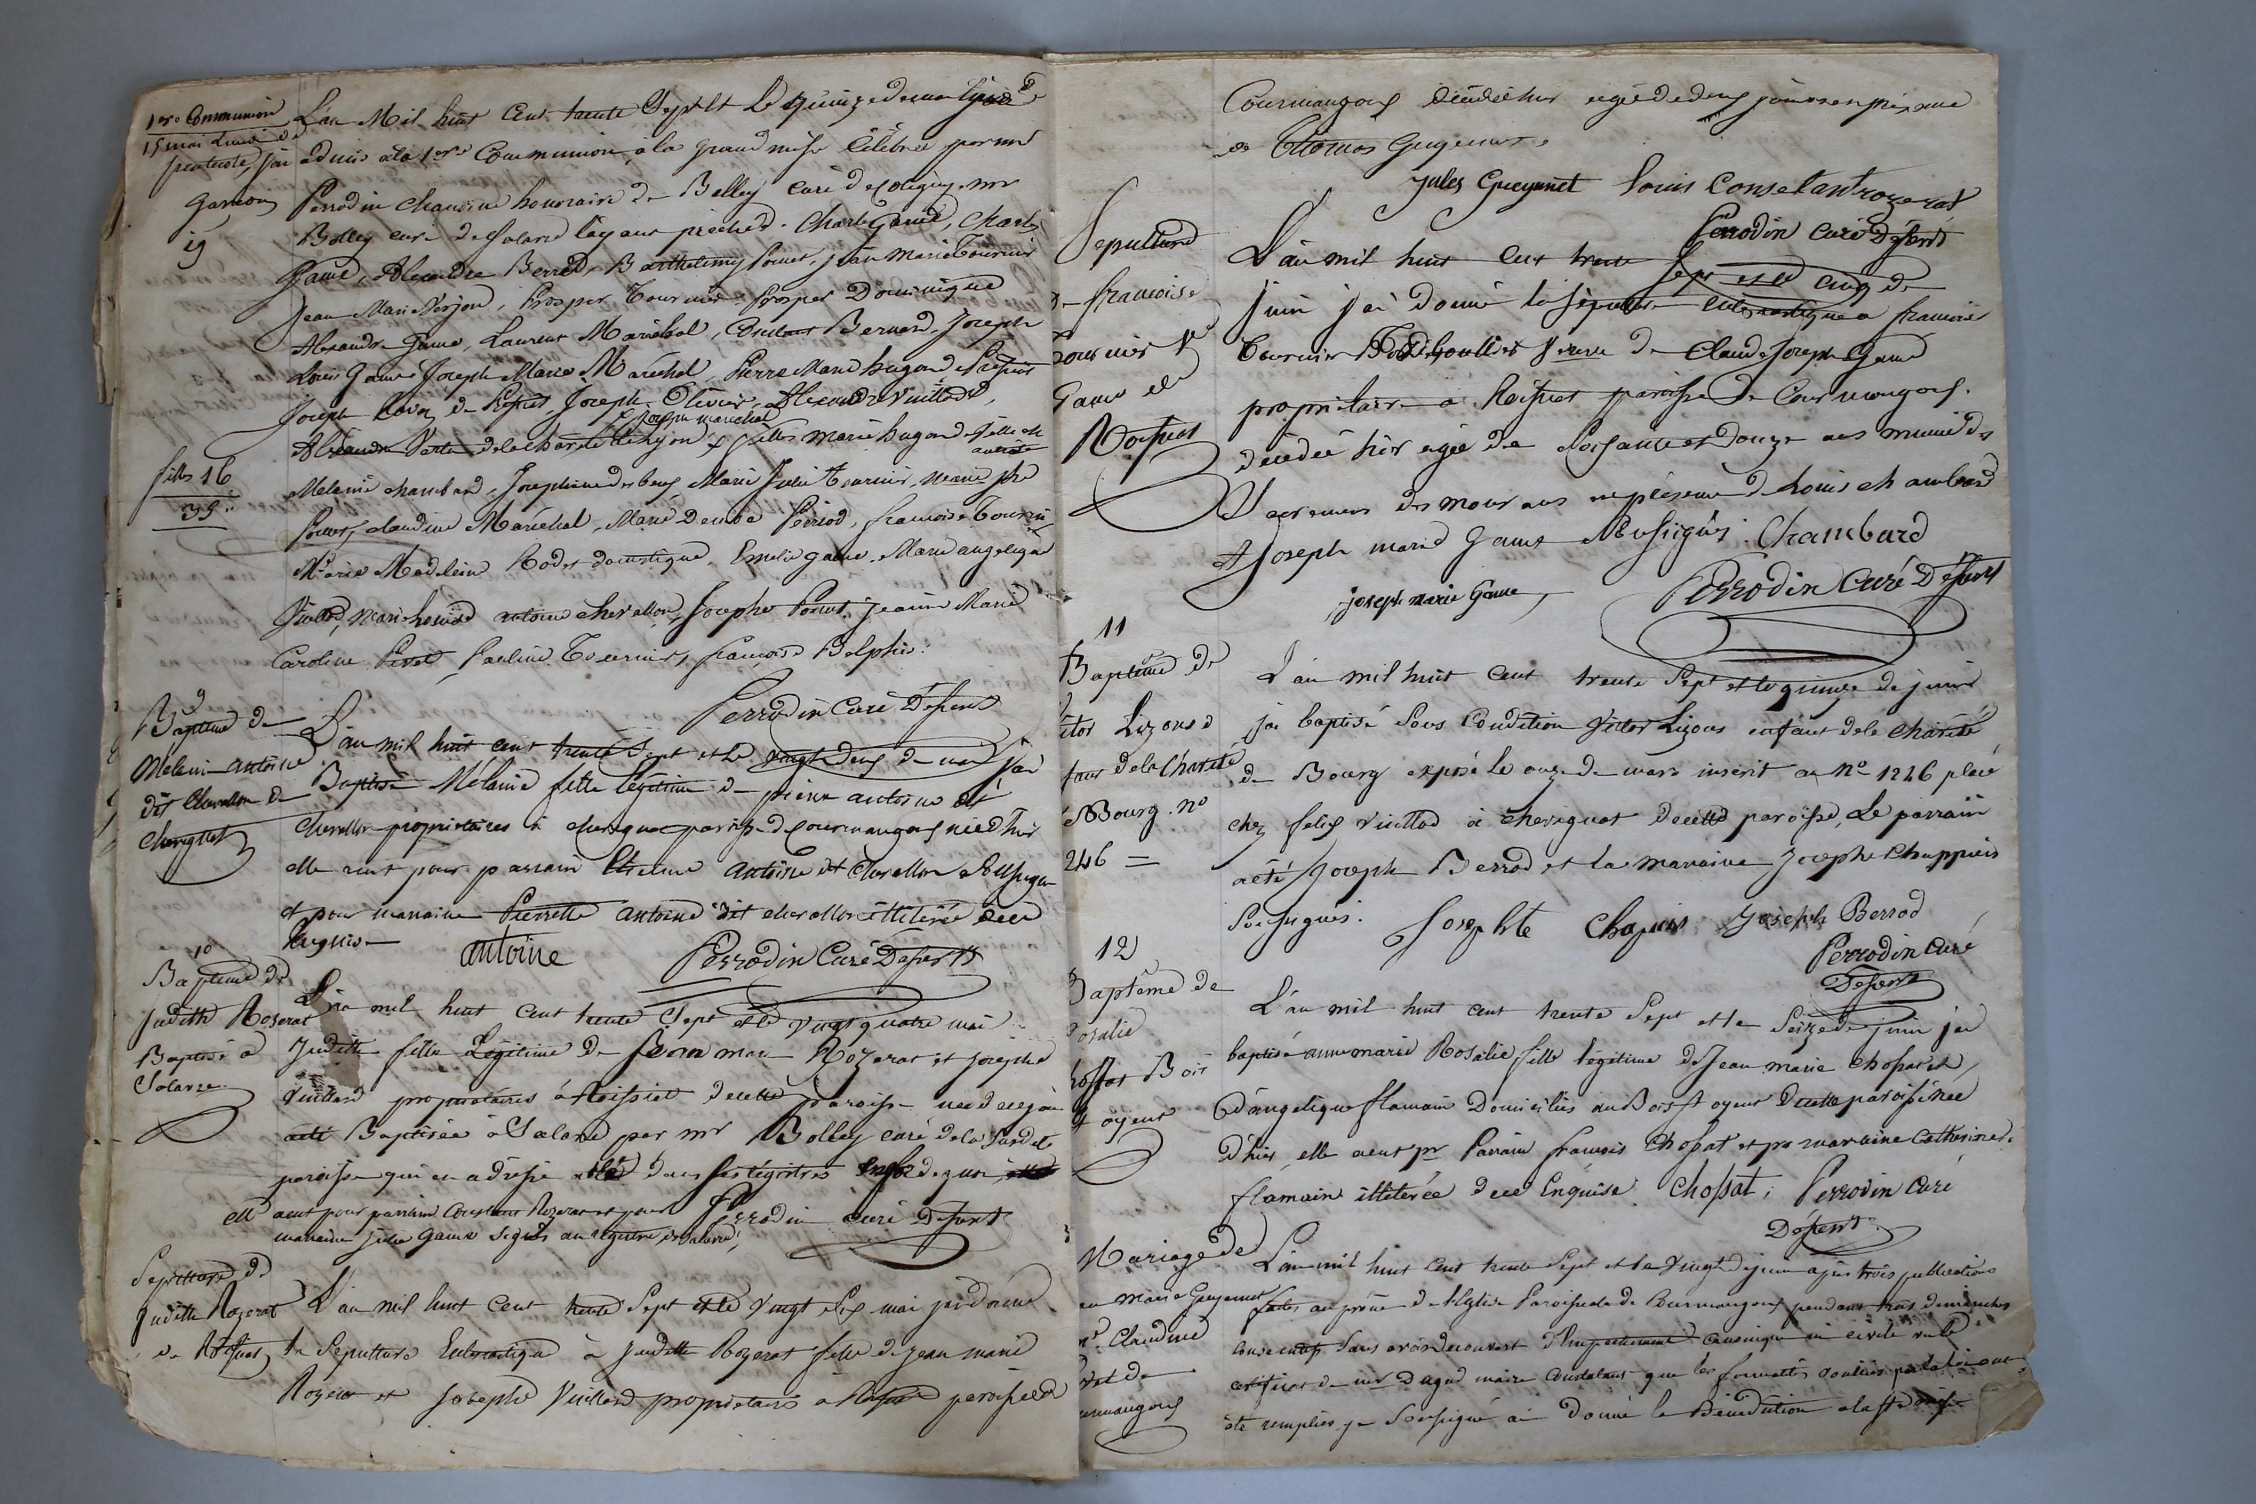 1ere Communion
15 mai Lundi de
pentecôte, j'ai
garçons
19
L'an Mil huit Cent trente Sept et Le quinze de mai
admis à la 1ere Communion, à la grand messe Célébrée par mr
Perrodin chanoine honoraire de Belley Curé de Coligny, mr
Bolley curé de Salavre l'ayant prêchée. Charles Gaud, Charles
Game, Alexandre Berrod, Barthelemy Ponet, jean Marie Tournier
Jean Marie Verjon, Prosper Tournier, Prosper Dominique
Alexandre Game, Laurent Maréchal, Constant Bernard, Joseph
Louis Game, Joseph Marie Maréchal, Pierre Marie hugon de
Joseph de Joseph Olivier, Alexandre Vuillod,
Joseph maréchal
Alexandre de la charité filles Marie hugon
filles 16
35
Melanie chambard, Josephine Marie Julie Tournier, Marie
claudine Maréchal, Marie Denise françoise Tournier
Marie Madeleine Rodet domestique, Emelie game, Marie angelique
Vuillod, antoine chevallon, Josephe Ponet, jeanne Marie
Caroline Pauline Tournier, françoise Belphis.
Perrodin Curé Dessert
9
Baptême de
Melanie antoine
dit chevallon de
cheviguat
L'an mil huit cent trente Sept et le vingt deux de mai j'ai
Baptisé Mélanie fille légitime de pierre antoine dit
chevallon propriétaires à cheviguat paroisse de Courmangoux née d'hier
elle a eut pour parrain antoine dit chevallon Soussigné
et pour marraine Pierrette antoine dit chevallon illiterée de ce
Requise
antoine Perrodin Curé Dessert
10
Baptême de
Judith Rozerat
Baptisé à
Salavre
L'an mil huit cent trente Sept et le vingt quatre mai
Judith fille Légitime de Jean marie Rozerat et josephe
Vuillard propriétaires à Roissiat de cette paroisse
été Baptisée à Salavre par mr Bolley curé de la susdite
paroisse qui en a dressé acte dans ses régistres
elle a eut pour parrain Constant Rozerat et pour
marraine julie Game Signés au régistre de Salavre,
Perrodin curé Dessert
Sepulture de
Judith Rozerat
de Roissiat
L'an mil huit cent trente Sept et le vingt Six mai j'ai donné
la Sepulture Ecclesiastique à judith Rozerat fille de jean marie
Rozerat et Josephe Vuillard propriétaires à Roissiat paroisse de
Courmangoux décédée hier agée de deux jours en présence
de Thomas Guyennet,
Jules Gueyenet Louis Consetant rozerat
Perrodin Curé Dessert
Sepulture
de françoise
Tournier Ve
Game de
Roissiat
L'an mil huit cent trente Sept et le cinq de
juin j'ai donné la sépulture ecclesiastique à françoise
Tournier veuve de Claude Joseph Game
propriétaire à Roissiat paroisse de Courmangoux.
décédée hier agée de Soixante et Douze ans munie des
Sacremens des mourans en présence de Louis chambard
et Joseph marie Game Soussignés. Chambard
joseph marie Game, Perrodin Curé Dessert
11
Baptême de
Victor Lizous
enfant de la Charité
de Bourg. no
1246 =
L'an mil huit cent trente Sept et le quinze de juin
j'ai baptisé Sous Condition Victor Lizous enfant de la charité
de Bourg exposé le onze de mars inscrit au no 1246 placé
chez felix Vuillod à cheviguat de cette paroisse, Le parrain
a été Joseph Berrod et la marraine Josephe Chappuis
Soussignés. Josephte Chapuis Joseph Berrod
Perrodin Curé
Dessert
12
Baptême de
Rosalie
Chossat Bois
St oyent
L'an mil huit cent trente Sept et le Seize de juin j'ai
baptisé anne marie Rosalie fille légitime de Jean marie Chossat et
d'angelique flamain Domiciliés au Bois St oyent de cette paroisse née
d'hier, elle a eut pr Parrain françois Chossat et pr marraine Catherine
flamain illiterée de ce Enquise. Chossat, Perrodin Curé
Dessert
Mariage de
jean Marie Guyennet
et Claudine
de
Courmangoux
L'an mil huit cent trente Sept et le vingt de juin après trois publications
faites au prône de l'Eglise Paroissiale de Courmangoux pendant trois dimanches
consecutifs Sans avoir découvert d'Empechement canonique ni civile vu le
certificat de mr Dagad maire constatant que les formalités voulues par la loi ont
été remplies je Soussigné ai donné la Bénédiction à la Ste messe